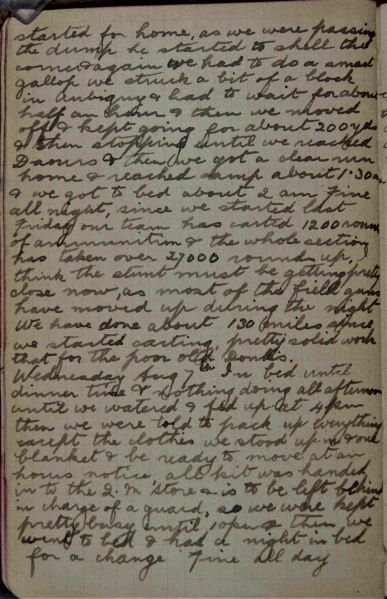 started for home, as we were passing
the dump he started to shell the
corner & again we had to do a smart
gallop we struck a bit of a block
in Aubigny & had to wait for about
half an hour & then we moved
off & kept going for about 200 yds
& then stopping until we reached
Daours & then we got a clear run
home & reached camp about 1.30 am
& we got to bed about 2 am Fine
all night, since we started last
Friday our team has carted 1200 rounds
of ammunition & the whole section
has taken over 27000 rounds up, I
think the stunt must be getting pretty
close now, as most of the field guns
have moved up during the night
We have done about 130 miles since
we started carting, pretty solid work
that for the poor old donks.
Wednesday Aug 7th In bed until
dinner time & nothing doing all afternoon
until we watered & fed up at 4 pm
then we were told to pack up everything
except the clothes we stood up in & one
blanket & be ready to move at an
hours notice all kit was handed
in to the Q.M. Store & is to be left behind
in charge of a guard, so we were kept
pretty busy until 10 pm & then we
went to bed & had a night in bed
for a change Fine all day